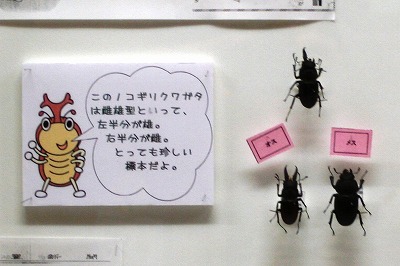 このノコギリクワガタ
は雌雄型といって、
左半分が雄。
右半分が雌。
とっても珍しい
標本だよ。
オス
メス